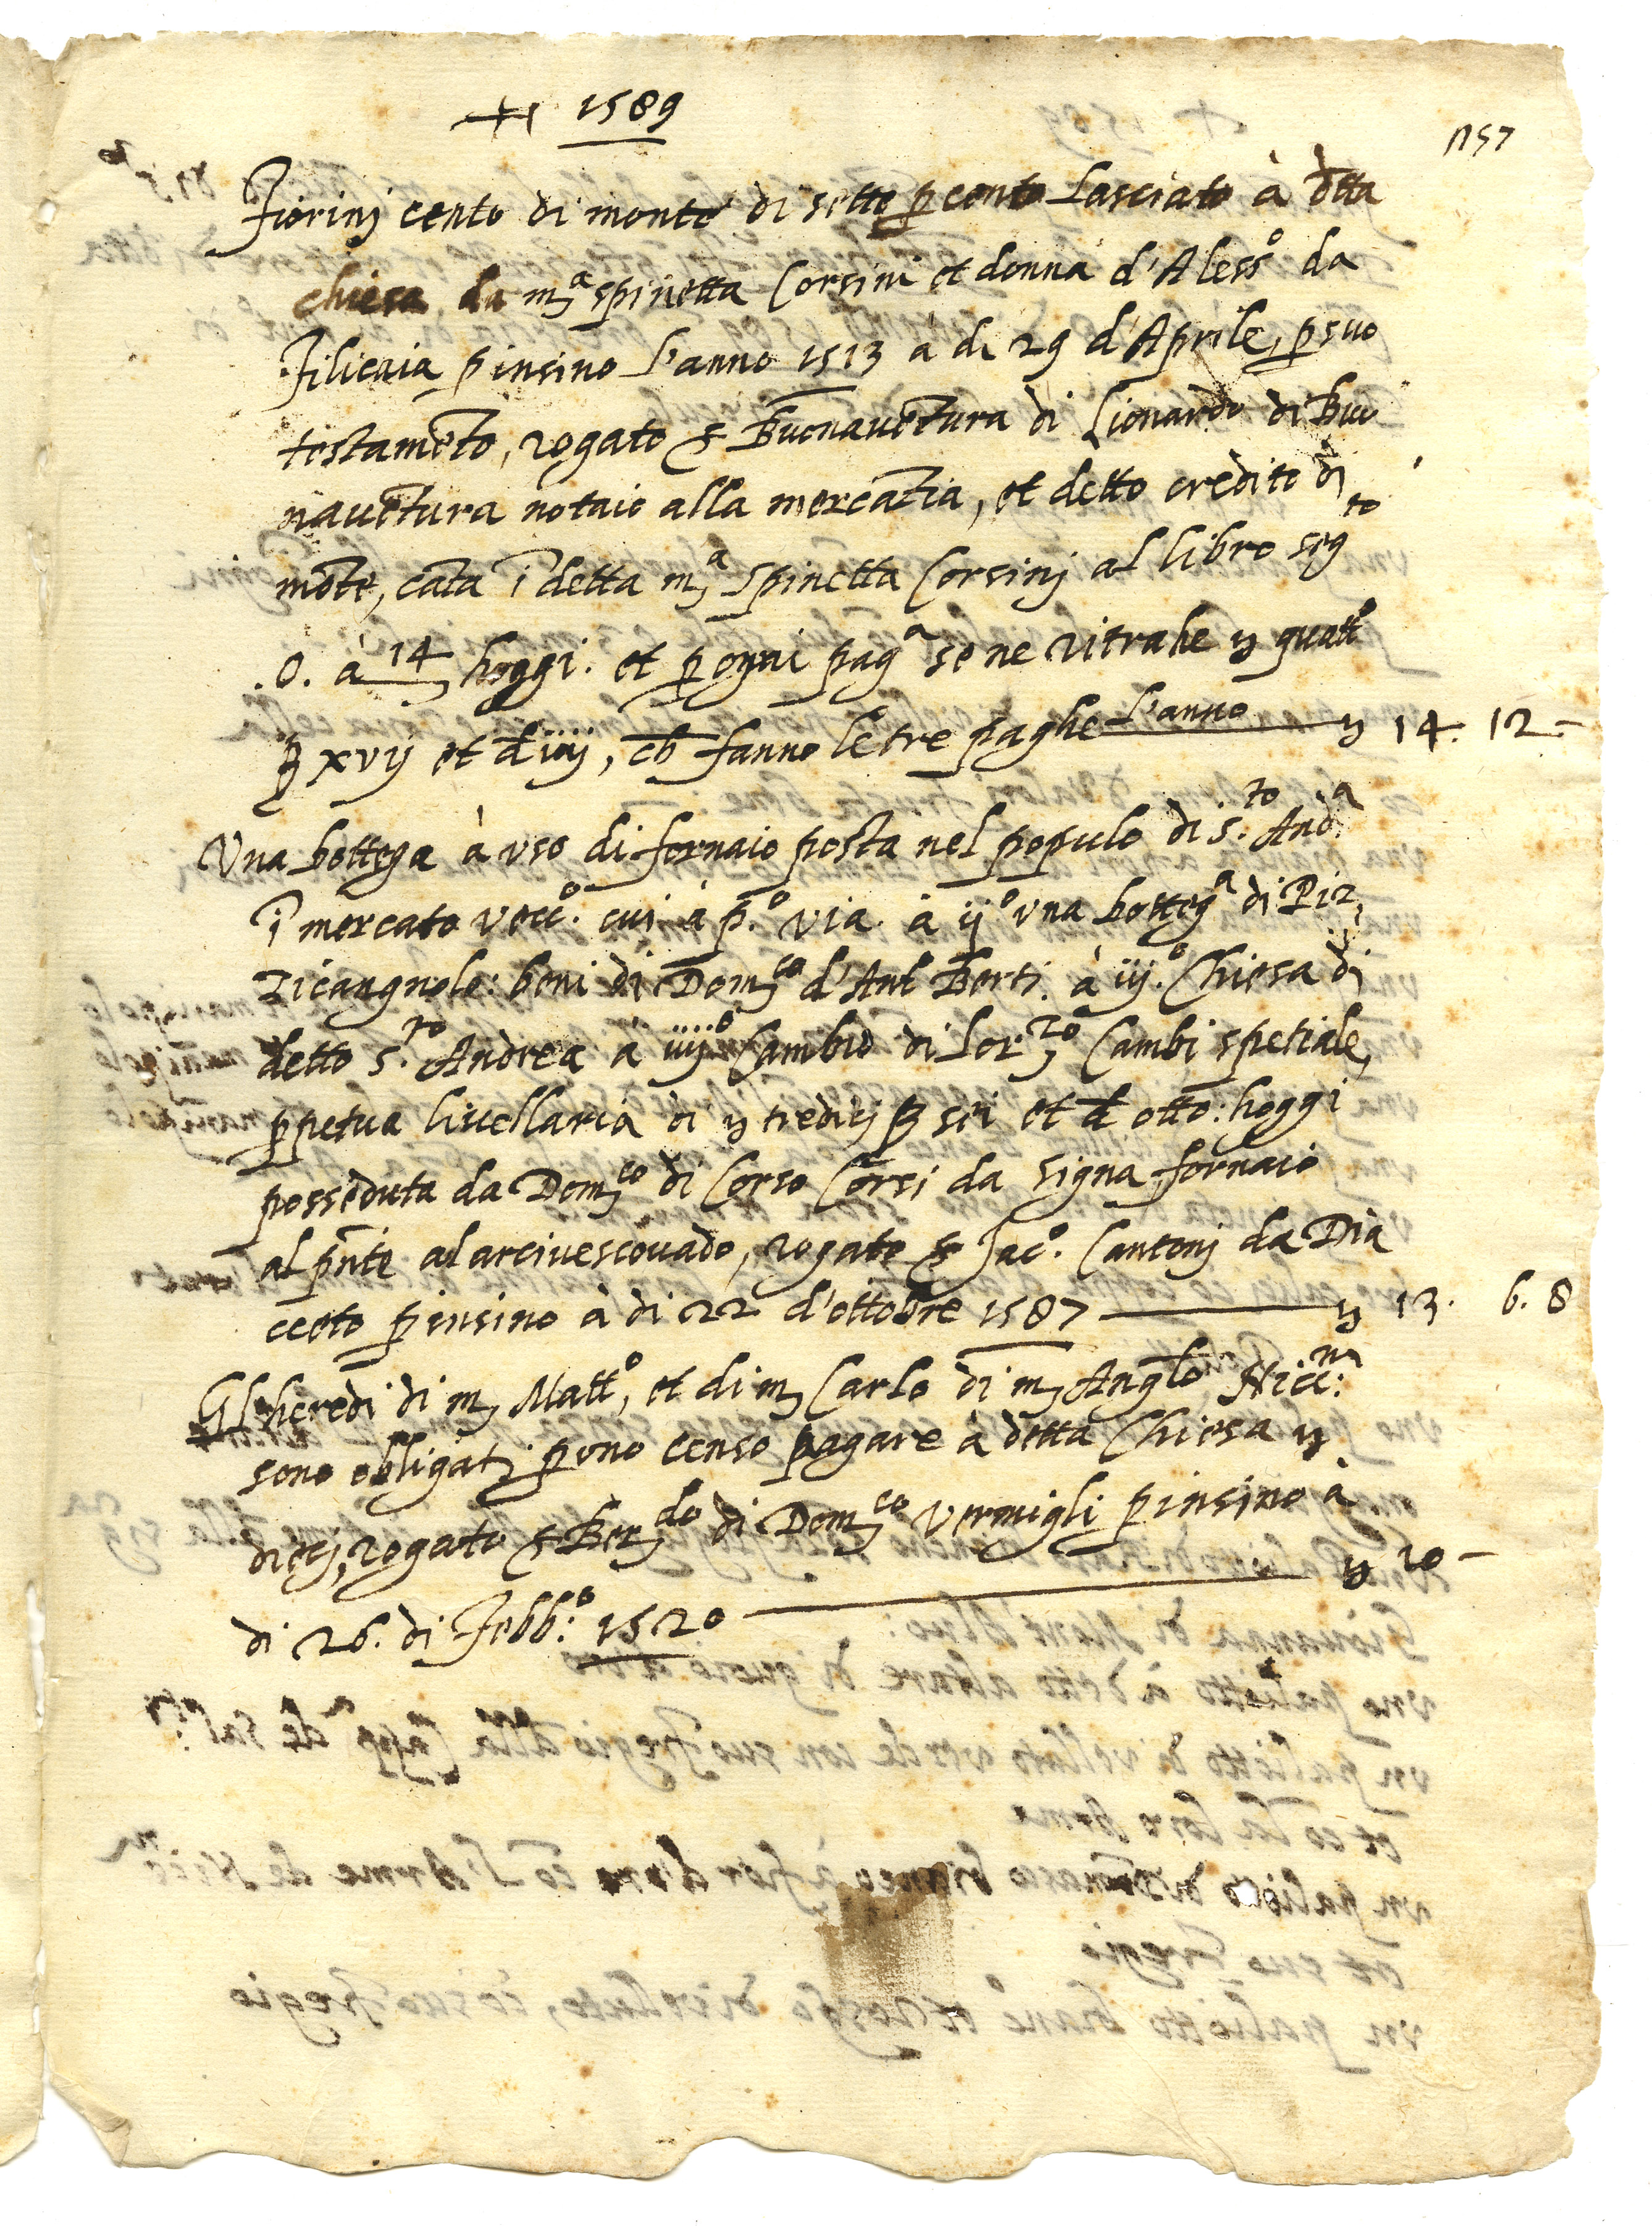 1589
1757
Fiorinj cento di monte di sette p cento Lasciato à dtta
chiesa da mª spinetta Corsini et donna d'Alessº da
Filicaia p insino L'anno 1513 à di 29 d'Aprile, p suo
testamēto, rogato p Buonauētura di Lionardo di Buo
nauētura notaio alla mercātia, et detto credito di
mōte, cāta ī detta mª Spinetta Corsinj al libro segto
.O. à 14 hoggi. et p ogni pagª se ne ritrahe quattº
β xvij et đ iiij, ch fanno le tre paghe L'anno 14. 12.–
Vna bottega à vso di fornaio posta nel popolo di s.to Andª
ī mercato vecc.º cui à p.º via. à ijº vna bottegª di Piz,
zicangnolo: beni di Domco d'Ant Berti. à iij.º Chiesa di
detto s.to Andrea à iiijº Cambio di Lorzo Cambi spetiale,
ppetua liuellaria di tredicj β sei et đ otto: hoggi
posseduta da Domco di Corso Corsi da Signa fornaio
al pnte al arciuescouado, rogato p Jac.º Cantonj da Dia
cceto p insino à di 22 d'ottobre 1587 13. 6. 8
Gl heredi di m Mattº, et di m Carlo di m Anglo Nicc:ni
sono obligatj p vno censo pagare à detta Chiesa
diecj, rogato p Berdo di Domco Vermigli p insino à
di 26. di Febb:º 1520 10 –